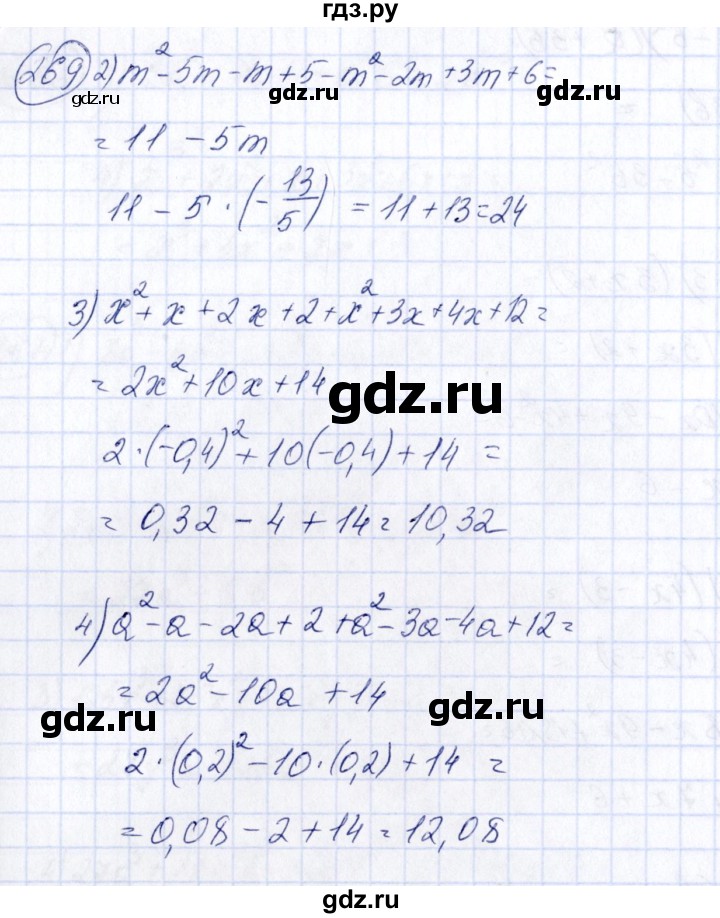 гдз.ру
269 2) m² - 5m - m + 5 - m² - 2m + 3m + 6 =
gdz.ru gdz.ru
= 11 - 5m
11 - 5 · (-13/5) = 11 + 13 = 24
3) x² + x + 2x + 2 + x² + 3x + 4x + 12 =
= 2x² + 10x + 14
gdz.ru
2 · (-0,4)² + 10(-0,4) + 14 =
= 0,32 - 4 + 14 = 10,32
4) a² - a - 2a + 2 + a² - 3a - 4a + 12 =
= 2a² - 10a + 14
gdz.ru gdz.ru
2 · (0,2)² - 10 · (0,2) + 14 =
= 0,08 - 2 + 14 = 12,08
gdz.ru